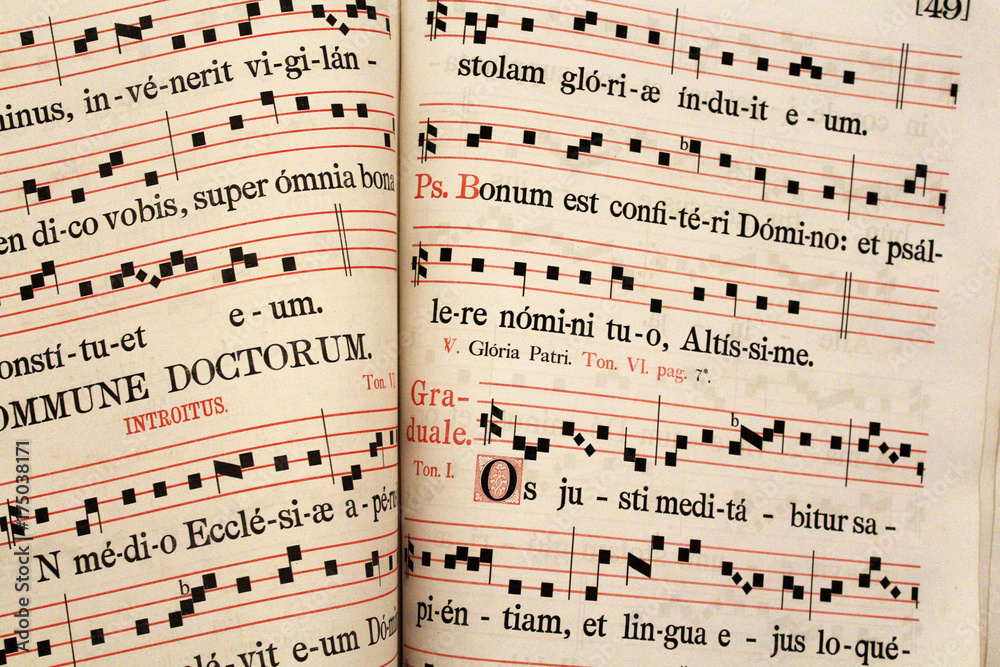 minus, in-vé-nerit vi-gi-lán-
en di-co vobis, super ómnia bona
onstí-tu-et e-um.
OMMUNE DOCTORUM.
INTROITUS. Ton. VI
N mé-di-o Ecclé-si-æ a-pé-
lé-vit e-um Dó-
[49]
stolam gló-ri-æ ín-du-it e-um.
Ps. Bonum est confi-té-ri Dómi-no: et psál-
le-re nómi-ni tu-o, Altís-si-me.
℣. Glória Patri. Ton. VI. pag. 7*.
Gra-
duale.
Ton. I.
Os ju-sti medi-tá-bitur sa-
pi-én-tiam, et lin-gua e-jus lo-qué-
Adobe Stock | #175038171